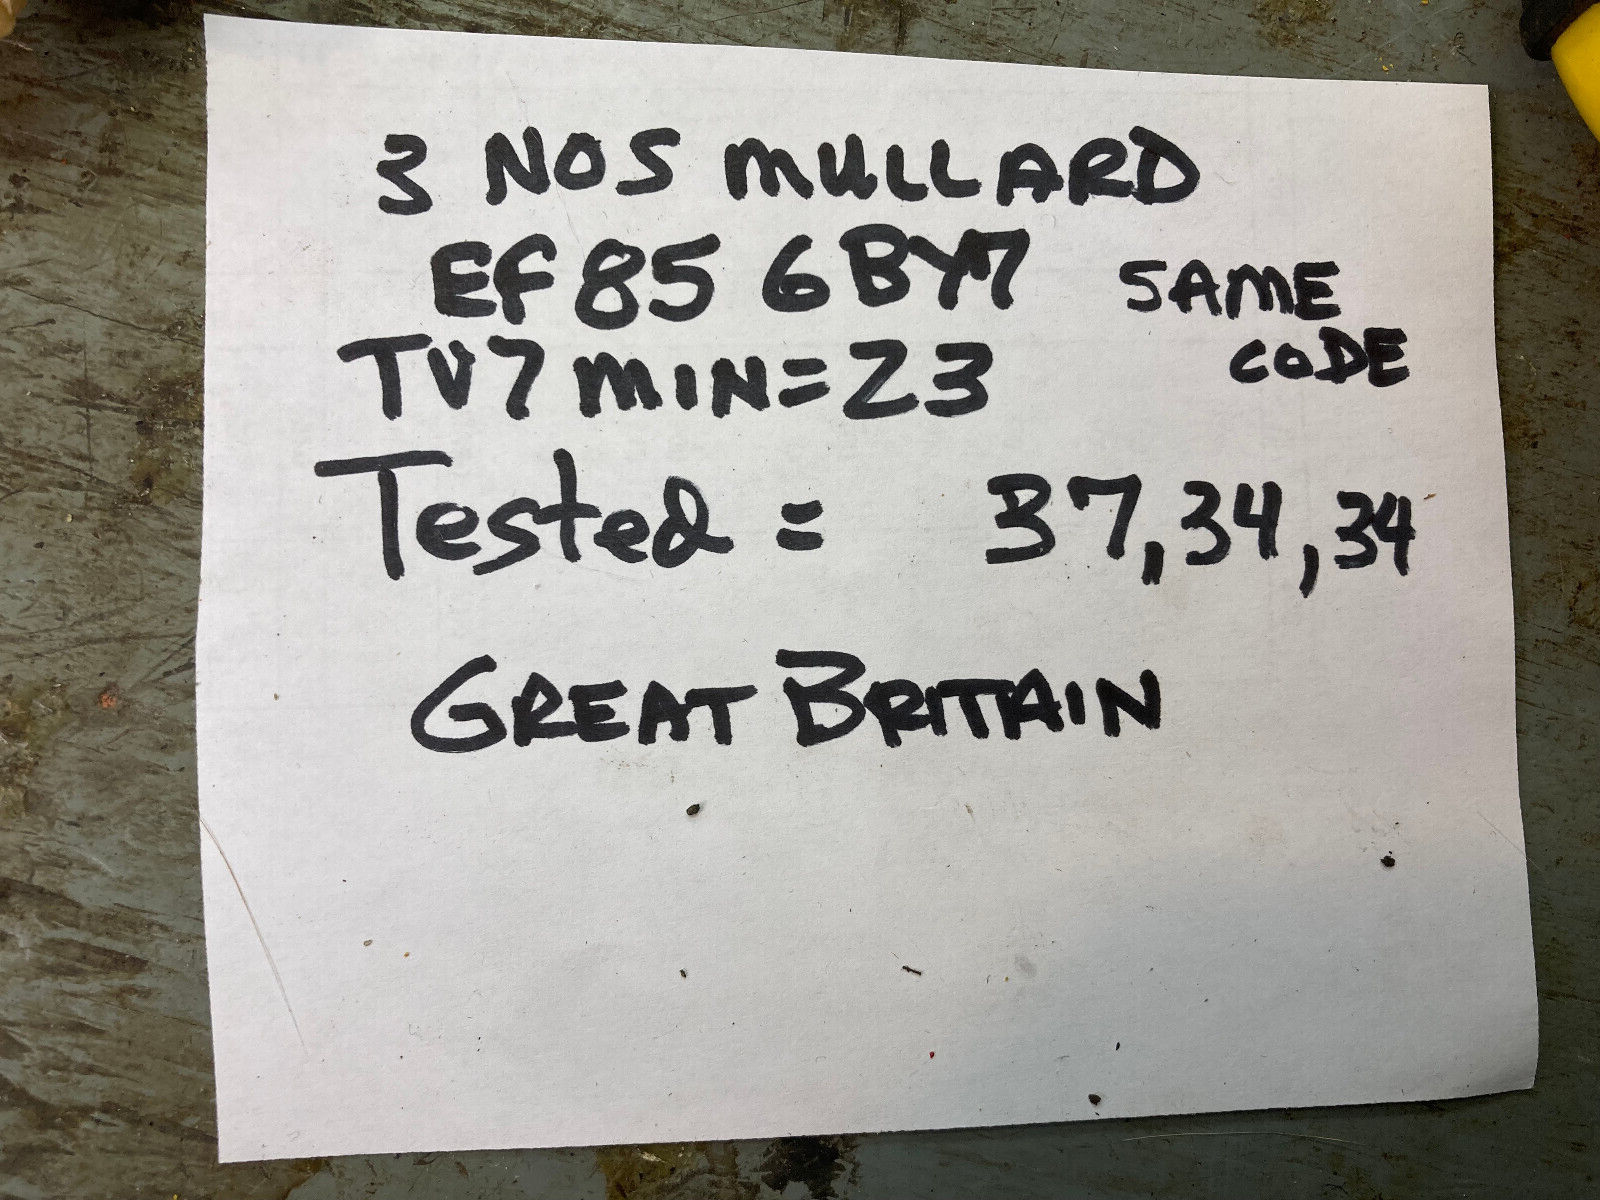 3 NOS MULLARD
EF85 6BY7 SAME
CODE
TV7 MIN=23
Tested = 37,34,34
GREAT BRITAIN